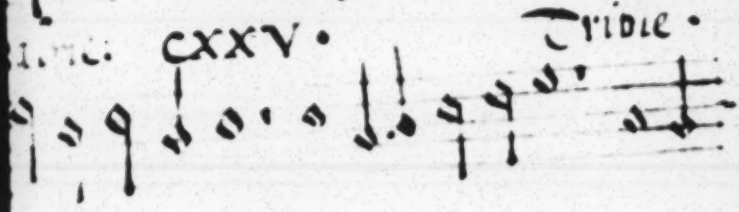 CXXV.
Triple.